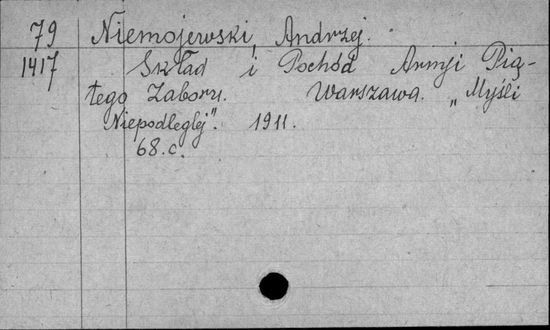 79 Niemojewski, Andrzej.
1417 Skład i Pochód Armji Pią-
tego Zaboru. Warszawa. „Myśli
Niepodległej". 1911.
68.c.